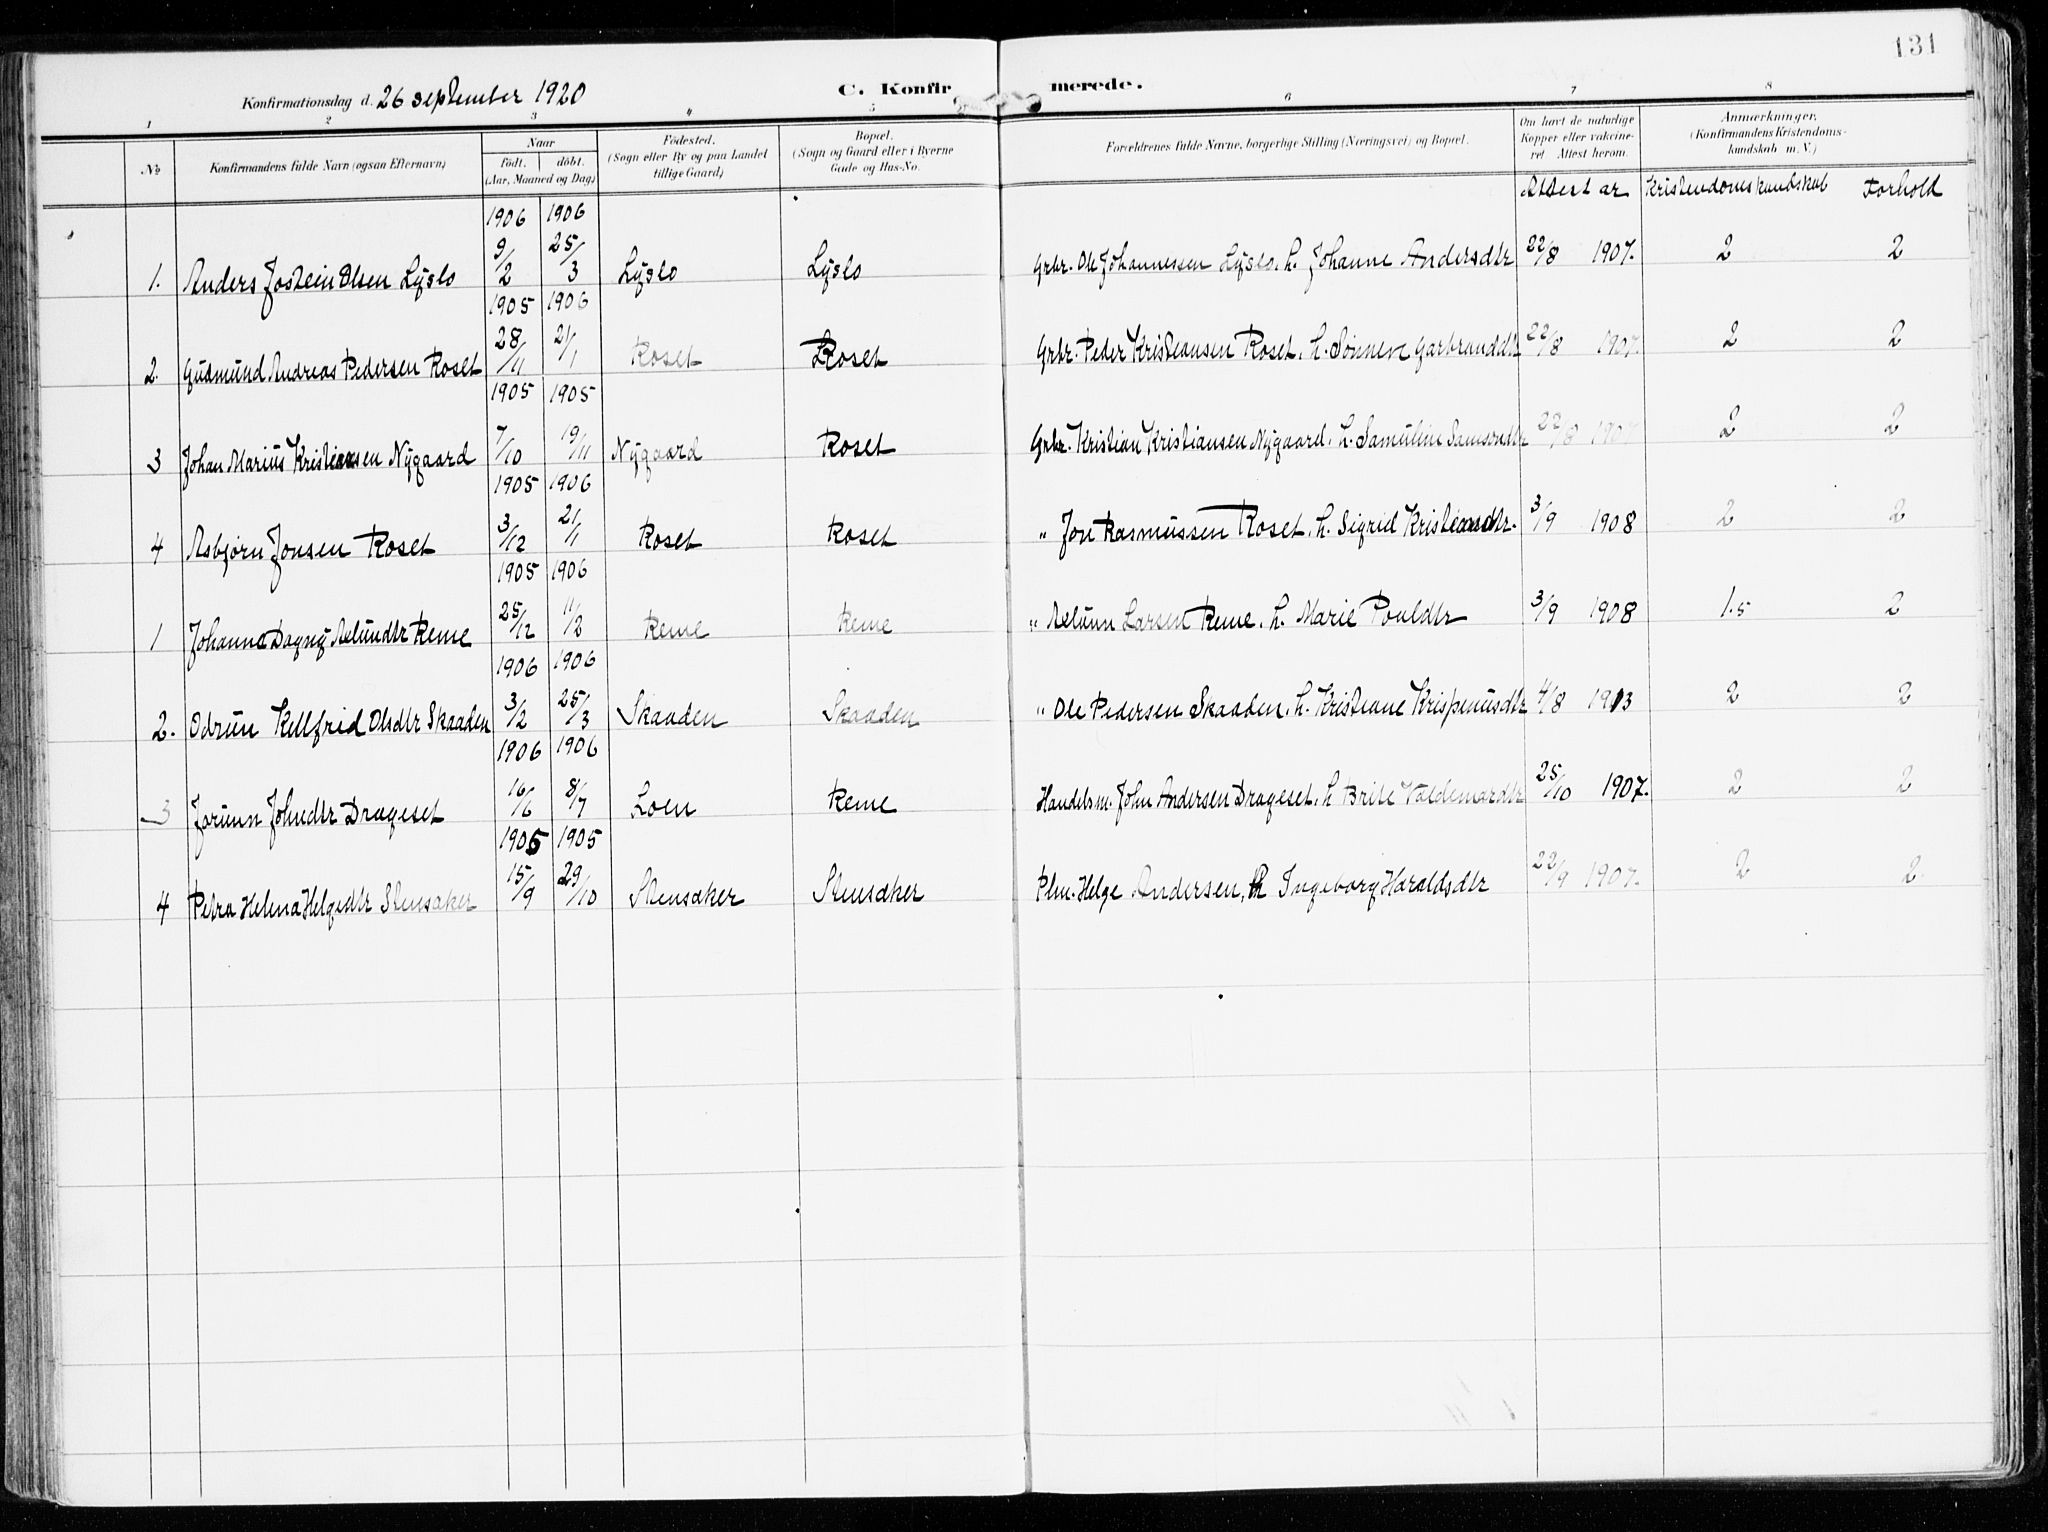 131
Konfirmationsdag d. 26 september 1920
C. Konfir merede.
1 2 3 4 5 6 7 8
No
Konfirmandens fulde Navn (ogsaa Efternavn)
Naar
födt. döbt.
(Aar, Maaned og Dag)
Födested.
(Sogn eller By og paa Landet
tillige Gaard)
Bopæl.
(Sogn og Gaard eller i Byerne
Gade og Hus-No.
Forældrenes fulde Navne, borgerlige Stilling (Næringsvei) og Bopæl.
Om havt de naturlige
Kopper eller vakcine-
ret Attest herom.
Anmærkninger.
(Konfirmandens Kristendoms-
kundskab m. V.)
Attest ar Kristendomskundskab Forhold
1906 1906
1. Anders Jostein Olsen Lyslo 9/2 25/3 Lyslo Lyslo Grbr. Ole Johannessen Lyslo. h. Johanne Andersdtr 22/8 1907. 2 2
1905 1906
2. Gudmund Andreas Pedersen Roset 28/11 21/1 Roset Roset Grbr. Peder Kristiansen Roset, h. Sønneve Garbranddtr 22/8 1907. 2 2
1905 1905
3 Johan Marius Kristiansen Nygaard 7/10 19/11 Nygaard Roset Grbr. Kristian Kristiansen Nygaard, h. Samuline Samsondtr 22/8 1907 2 2
1905 1906
4 Asbjørn Jonsen Roset 3/12 21/1 Roset Roset " Jon Rasmussen Roset, h. Sigrid Kristiansdtr. 3/9 1908 2 2
1905 1906
1 Johanne Dagny Aelundtr Reme 25/12 11/2 Reme Reme " Aelunn Larsen Reme, h. Marie Pouldtr 3/9 1908 1.5 2
1906 1906
2. Odrun Kellfrid Olsdtr Skaaden 3/2 25/3 Skaaden Skaaden " Ole Pedersen Skaaden, h. Kristiane Krispinusdtr 4/8 1913 2 2
1906 1906
3 Jorunn Johndtr Drageset 16/6 8/7 Loen Reme Handelsm. John Andersen Drageset, h Brite Valdemardtr 25/10 1907. 2 2
1905 1905
4 Petra Helena Helgedtr Stensaker 15/9 29/10 Stensaker Stensaker Plm. Helge Andersen, h Ingeborg Haraldsdtr 22/9 1907. 2 2.